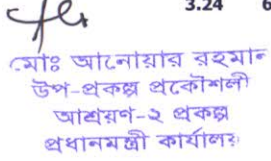 3.24
মোঃ আনোয়ার রহমান
উপ-প্রকল্প প্রকৌশলী
আশ্রয়ণ-২ প্রকল্প
প্রধানমন্ত্রী কার্যালয়